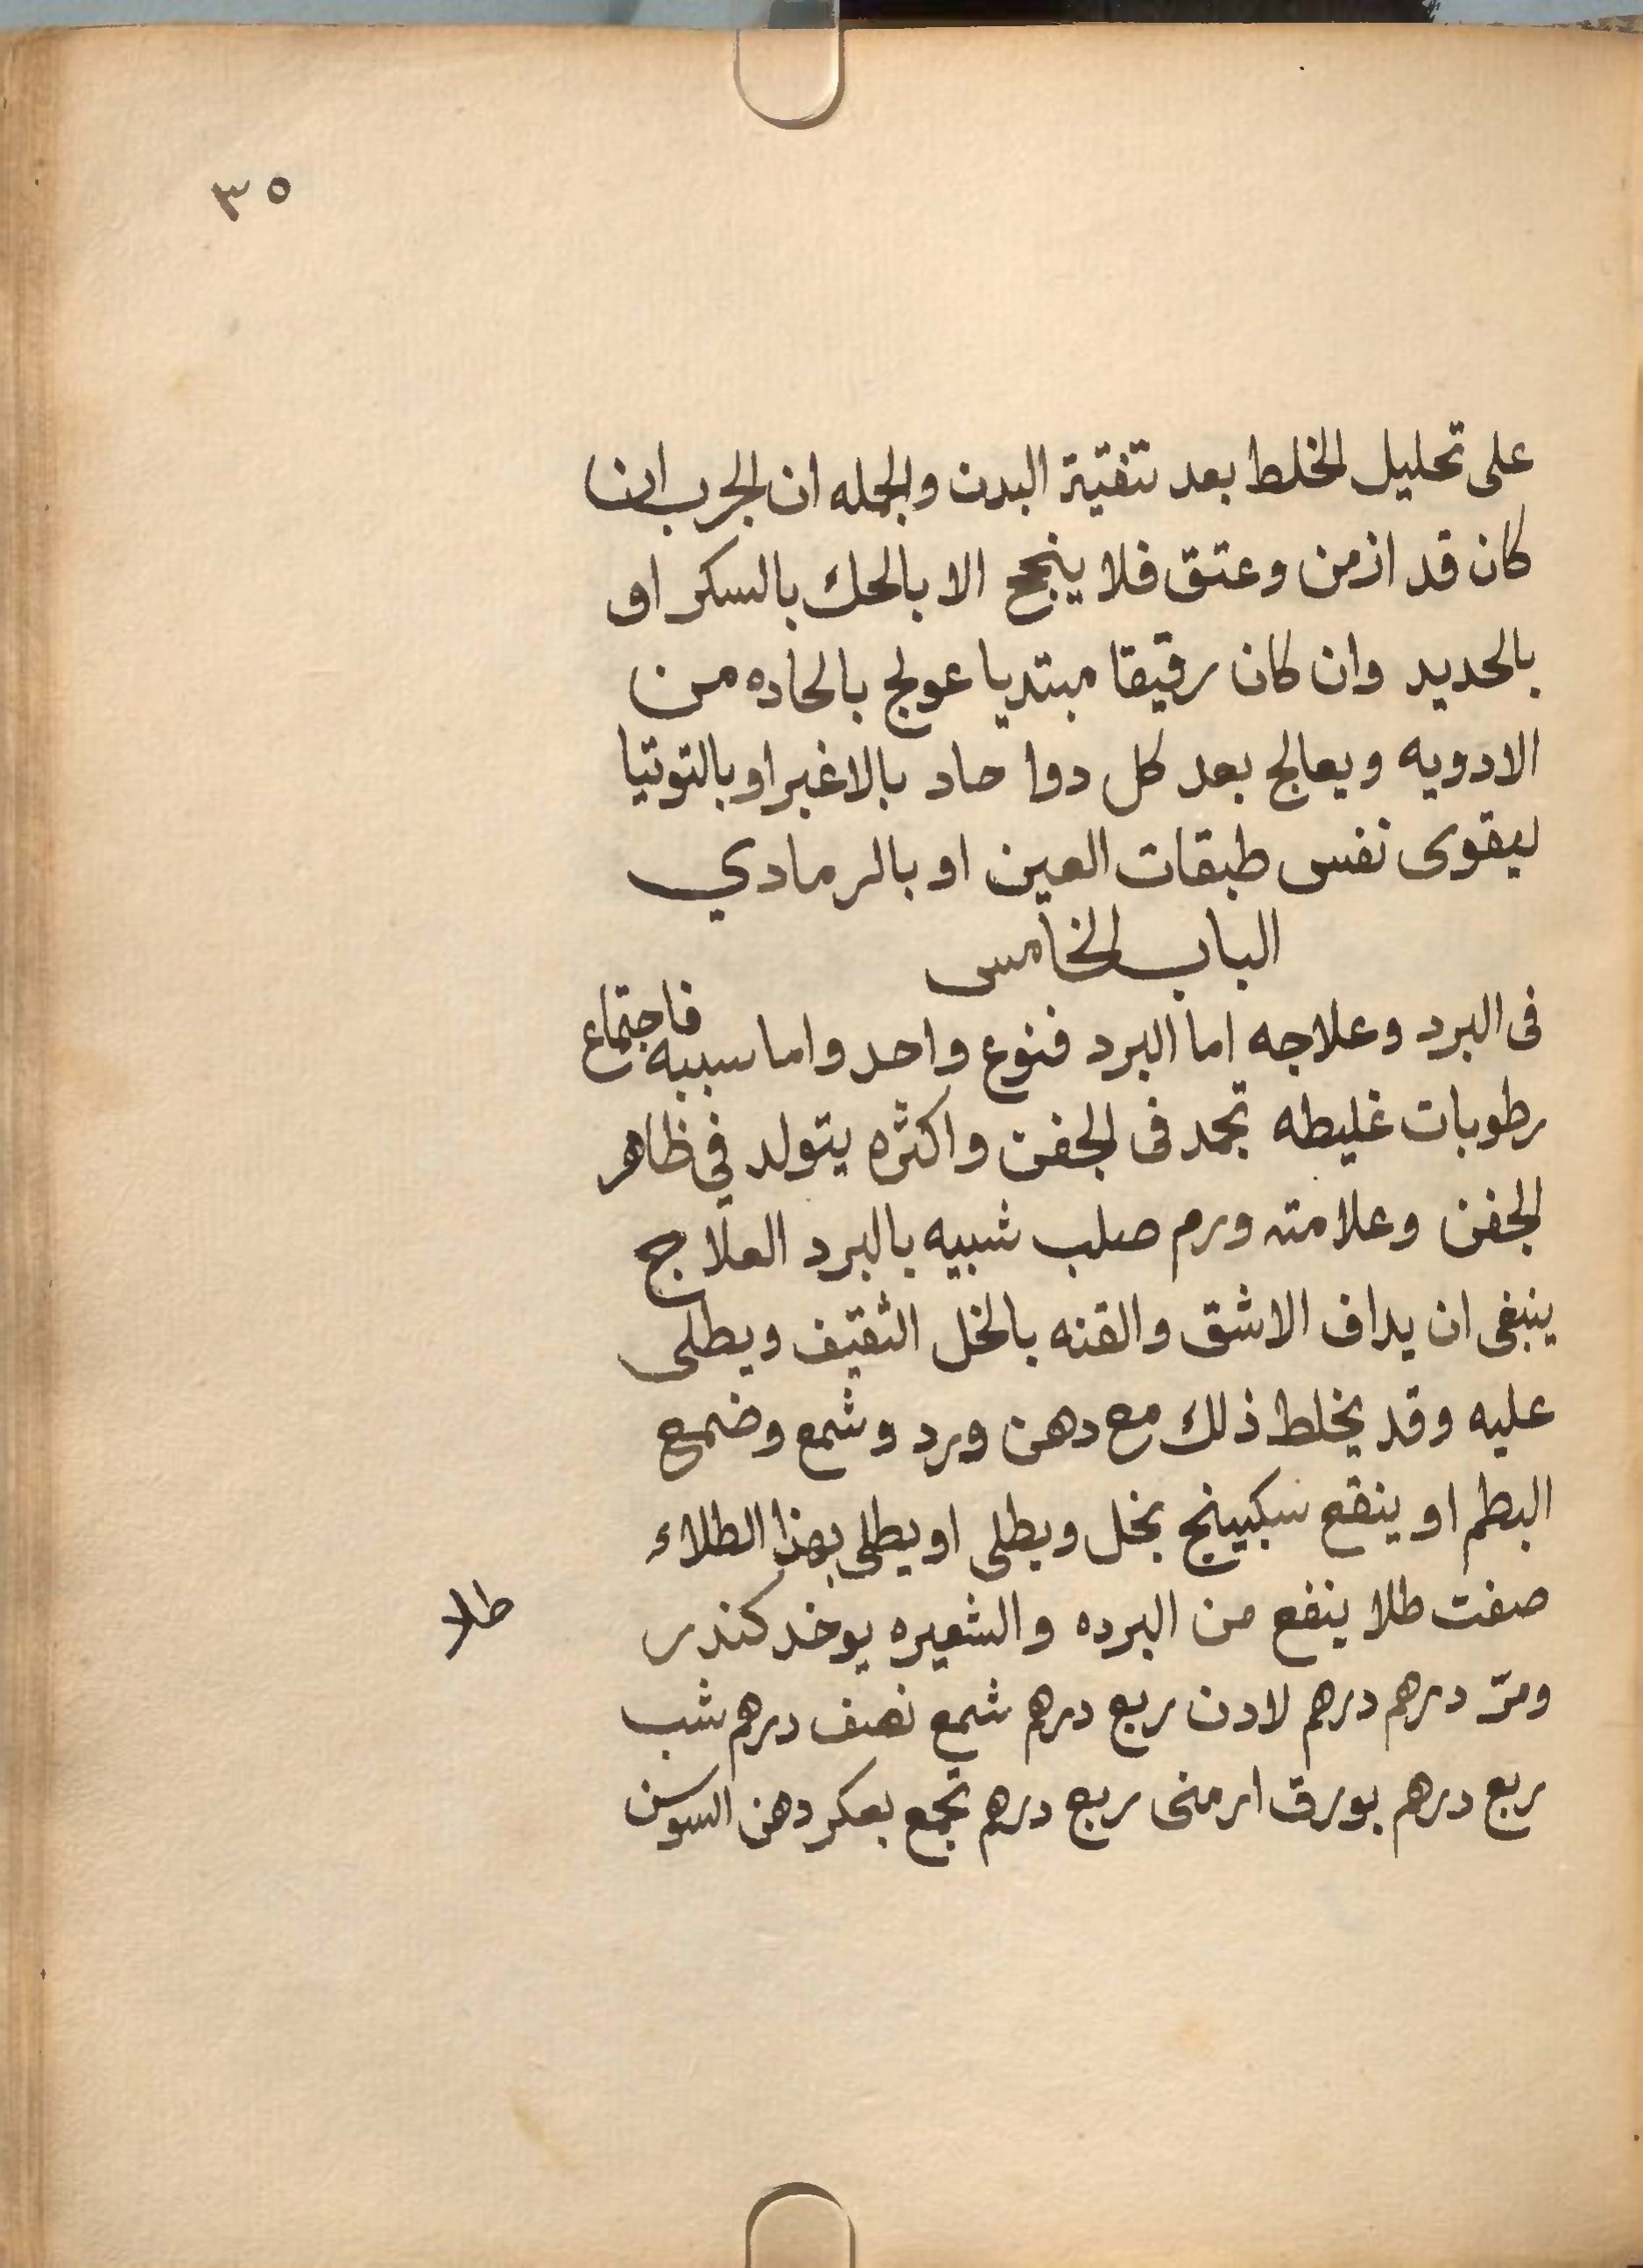 ٣٥
على تحليل الخلط بعد تنقية البدن والجمله ان الجرب ان
كان قد ازمن وعتق فلا ينجح الا بالحك بالسكر او
بالحديد وان كان رقيقا مبتديا عولج بالحاده من
الادويه ويعالج بعد كل دوا حاد بالاغبر او بالتوتيا
ليقوى نفس طبقات العين او بالرمادي
الباب الخامس
فى البرد وعلاجه اما البرد فنوع واحد واما سببه فاجتماع
رطوبات غليطه تجمد فى الجفن واكثره يتولد في ظاهر
الجفن وعلامته ورم صلب شبيه بالبرد العلاج
ينبغى ان يداف الاشق والقنه بالخل الثقيف ويطلى
عليه وقد يخلط ذلك مع دهن ورد وشمع وضمع
البطم او ينقع سكبينج بخل ويطلى او يطلى بهذا الطلاء
صفت طلا ينفع من البرده والشعيره يوخد كندر
طلا
ومرّ درهم درهم لادن ربع درهم شمع نصف درهم شب
ربع درهم بورق ارمنى ربع درهم تجمع بعكر دهن السوسن